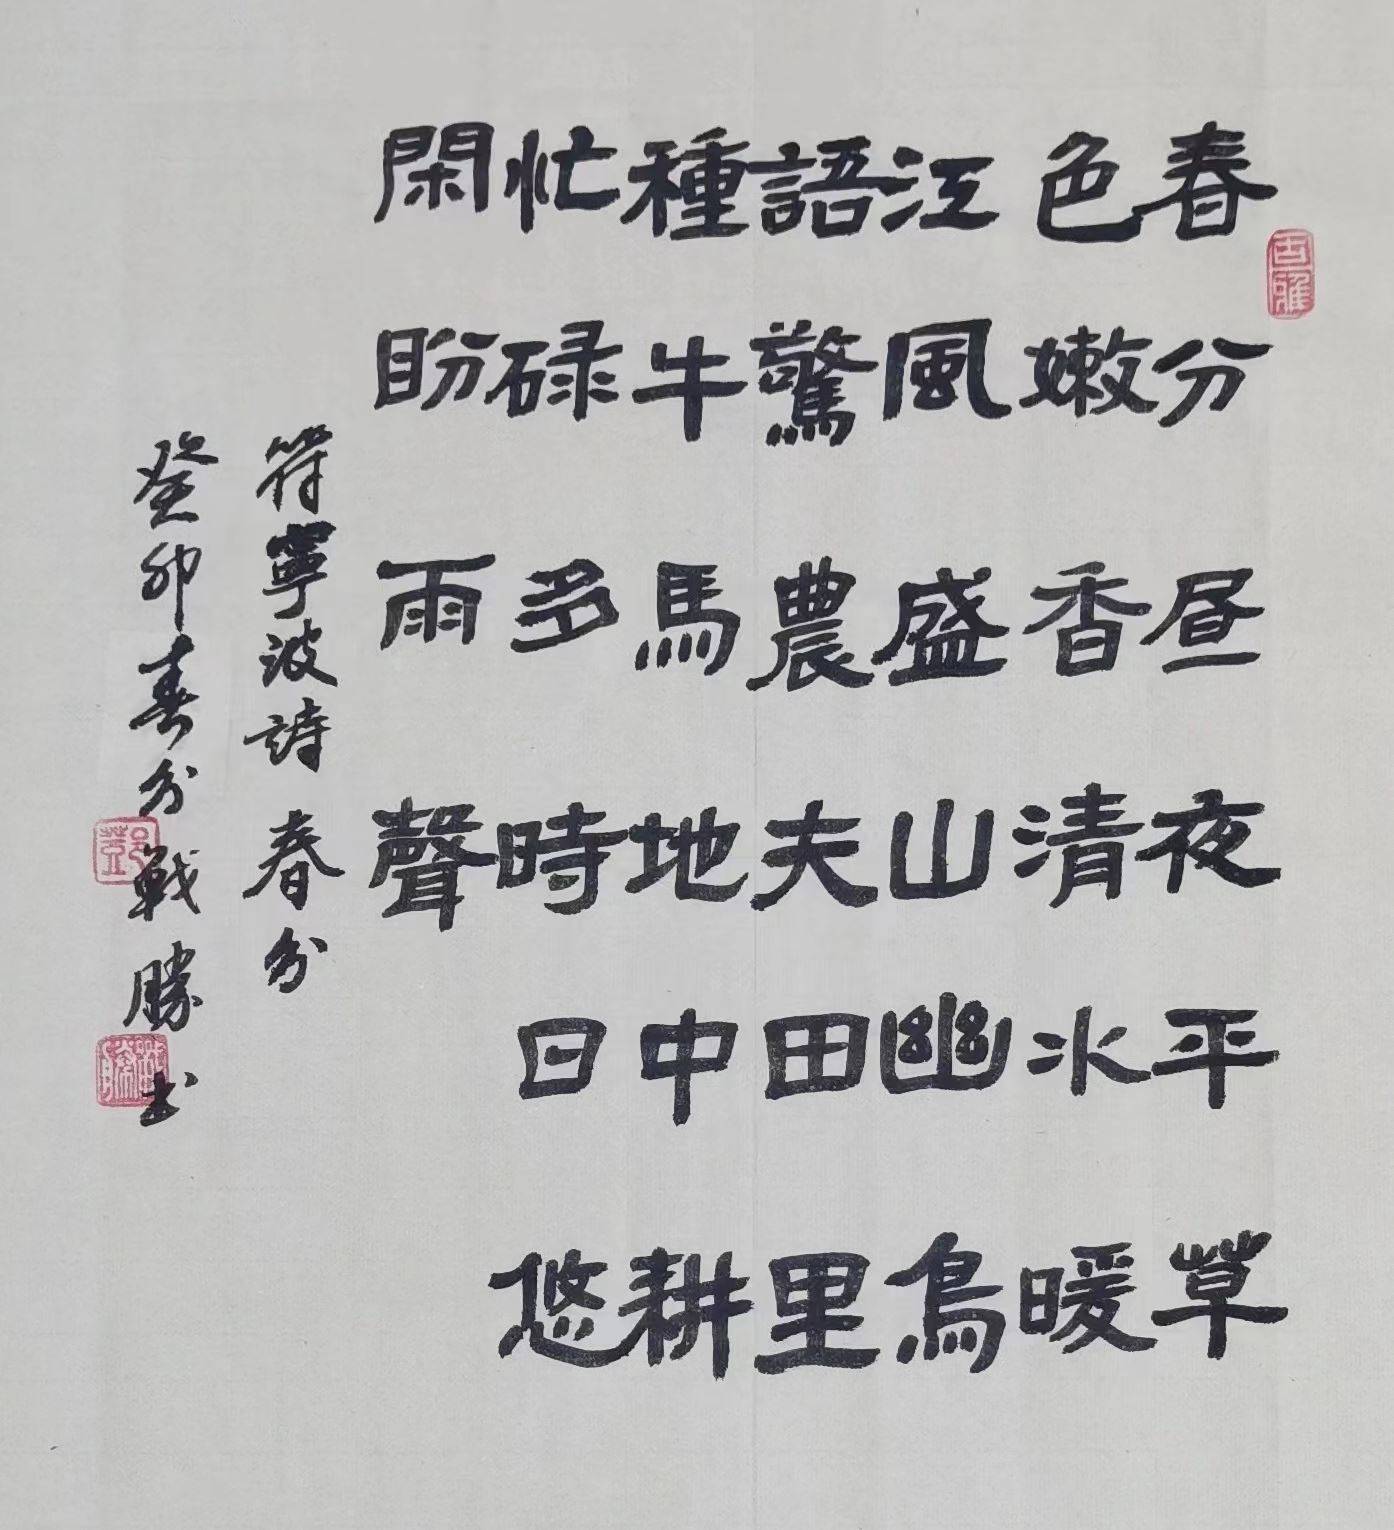 春分昼夜平草
色嫩香清水暖
江風盛山幽鳥
語驚農夫田里
種牛馬地中耕
忙碌多時日悠
閑盼雨聲
符寧波詩春分
癸卯春分戰勝书
古雅
鄧
戰勝